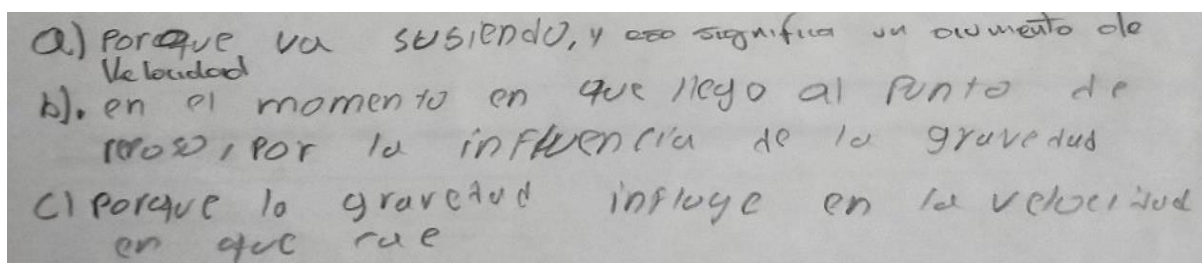 a) Porque va susiendo, y eso significa un aumento de
Velocidad
b). en el momento en que llego al Punto de
reposo, Por la influencia de la gravedad
c) Porque la gravedad influye en la velocidad
en que cae